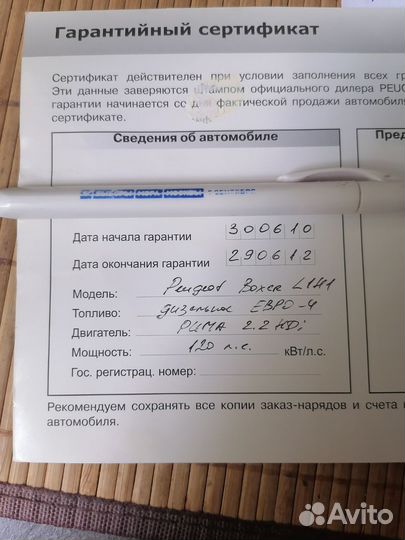 Гарантийный сертификат
Сертификат действителен при условии заполнения всех гр
Эти данные заверяются штампом официального дилера PEUG
гарантии начинается со дня фактической продажи автомобиля
сертификате.
Сведения об автомобиле
Пред
Дата начала гарантии 300610
Дата окончания гарантии 290612
Модель: Peugeot Boxer L1H1
Топливо: дизельное ЕВРО-4
Двигатель: PUMA 2.2 HDi
Мощность: 120 л.с. кВт/л.с.
Гос. регистрац. номер:
Рекомендуем сохранять все копии заказ-нарядов и счета
автомобиля.
Avito